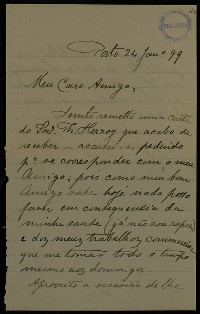 Porto 22 Janº 99
Meu Caro Amigo,
Junto remetto uma carta
do Snr. Th. Herzog que acabo de
receber accusa-a, pedindo
pª se corresponder com o meu
Amigo; pois como meu bom
Amigo sabe hoje nada posso
fazer em consequencia da
minha saude (já não sou rapaz)
e dos meus trabalhos commerciaes
que me tomam todo o tempo
mesmo aos domingos.
Aproveito a occasião de lhe